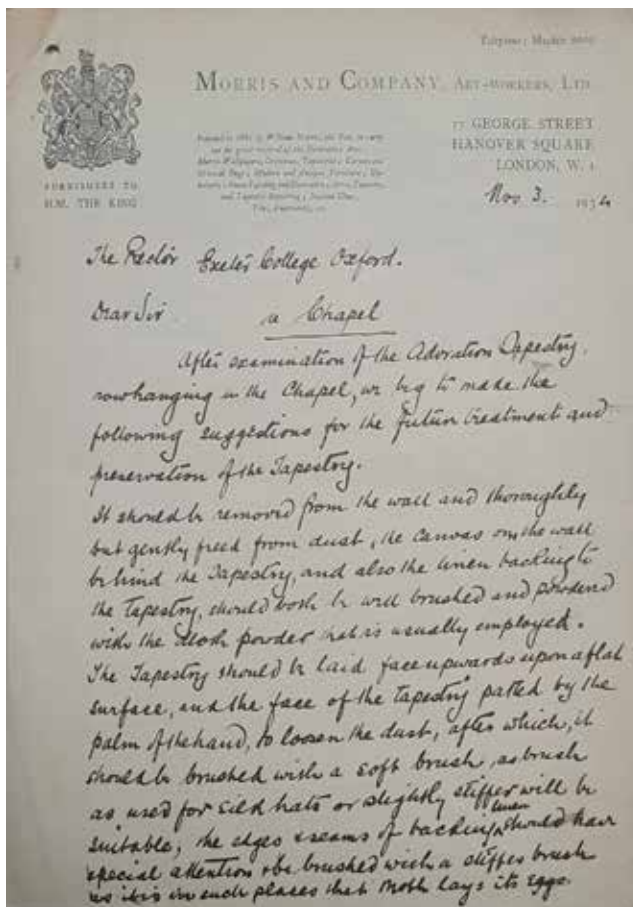 MORRIS AND COMPANY, ART-WORKERS, LTD.
17 GEORGE STREET
HANOVER SQUARE
LONDON, W. 1
FURNISHERS TO
H.M. THE KING
Nov 3. 1934
The Rector Exeter College Oxford.
Dear Sir
re Chapel
After examination of the Adoration Tapestry,
now hanging in the Chapel, we beg to made the
following suggestions for the future treatment and
preservation of the Tapestry.
It should be removed from the wall and thoroughly
but gently freed from dust, the canvas on the wall
behind the Tapestry, and also the linen backing to
the Tapestry, should both be well brushed and powdered
with the Moth powder that is usually employed.
The Tapestry should be laid face upwards upon a flat
surface, and the face of the tapestry patted by the
palm of the hand, to loosen the dust, after which, it
should be brushed with a soft brush, a brush
as used for silk hats or slightly stiffer will be
suitable, the edges & seams of backing linen should have
special attention & be brushed with a stiffer brush
as it is in such places that moth lays its eggs.